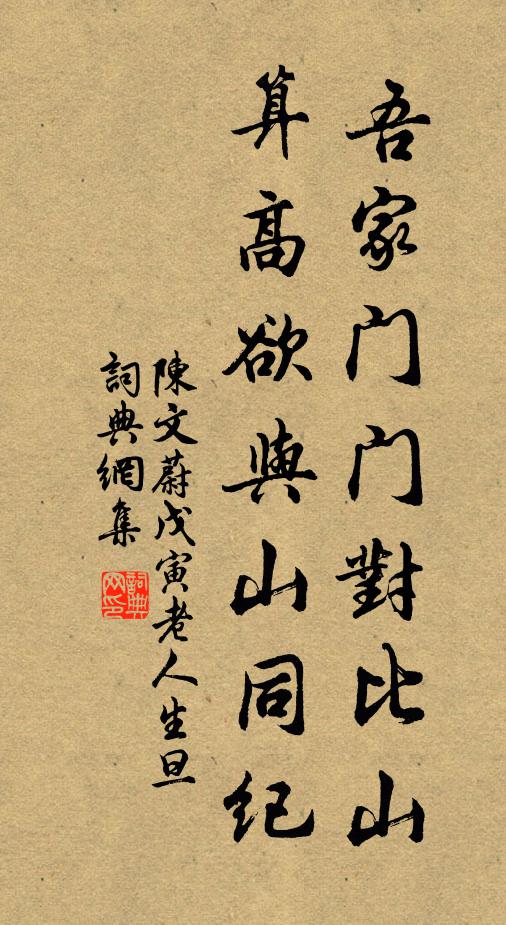 吾家門門對比山
算高欲與山同紀
陳文蔚戊寅老人生旦
詞典網集
詞典网印